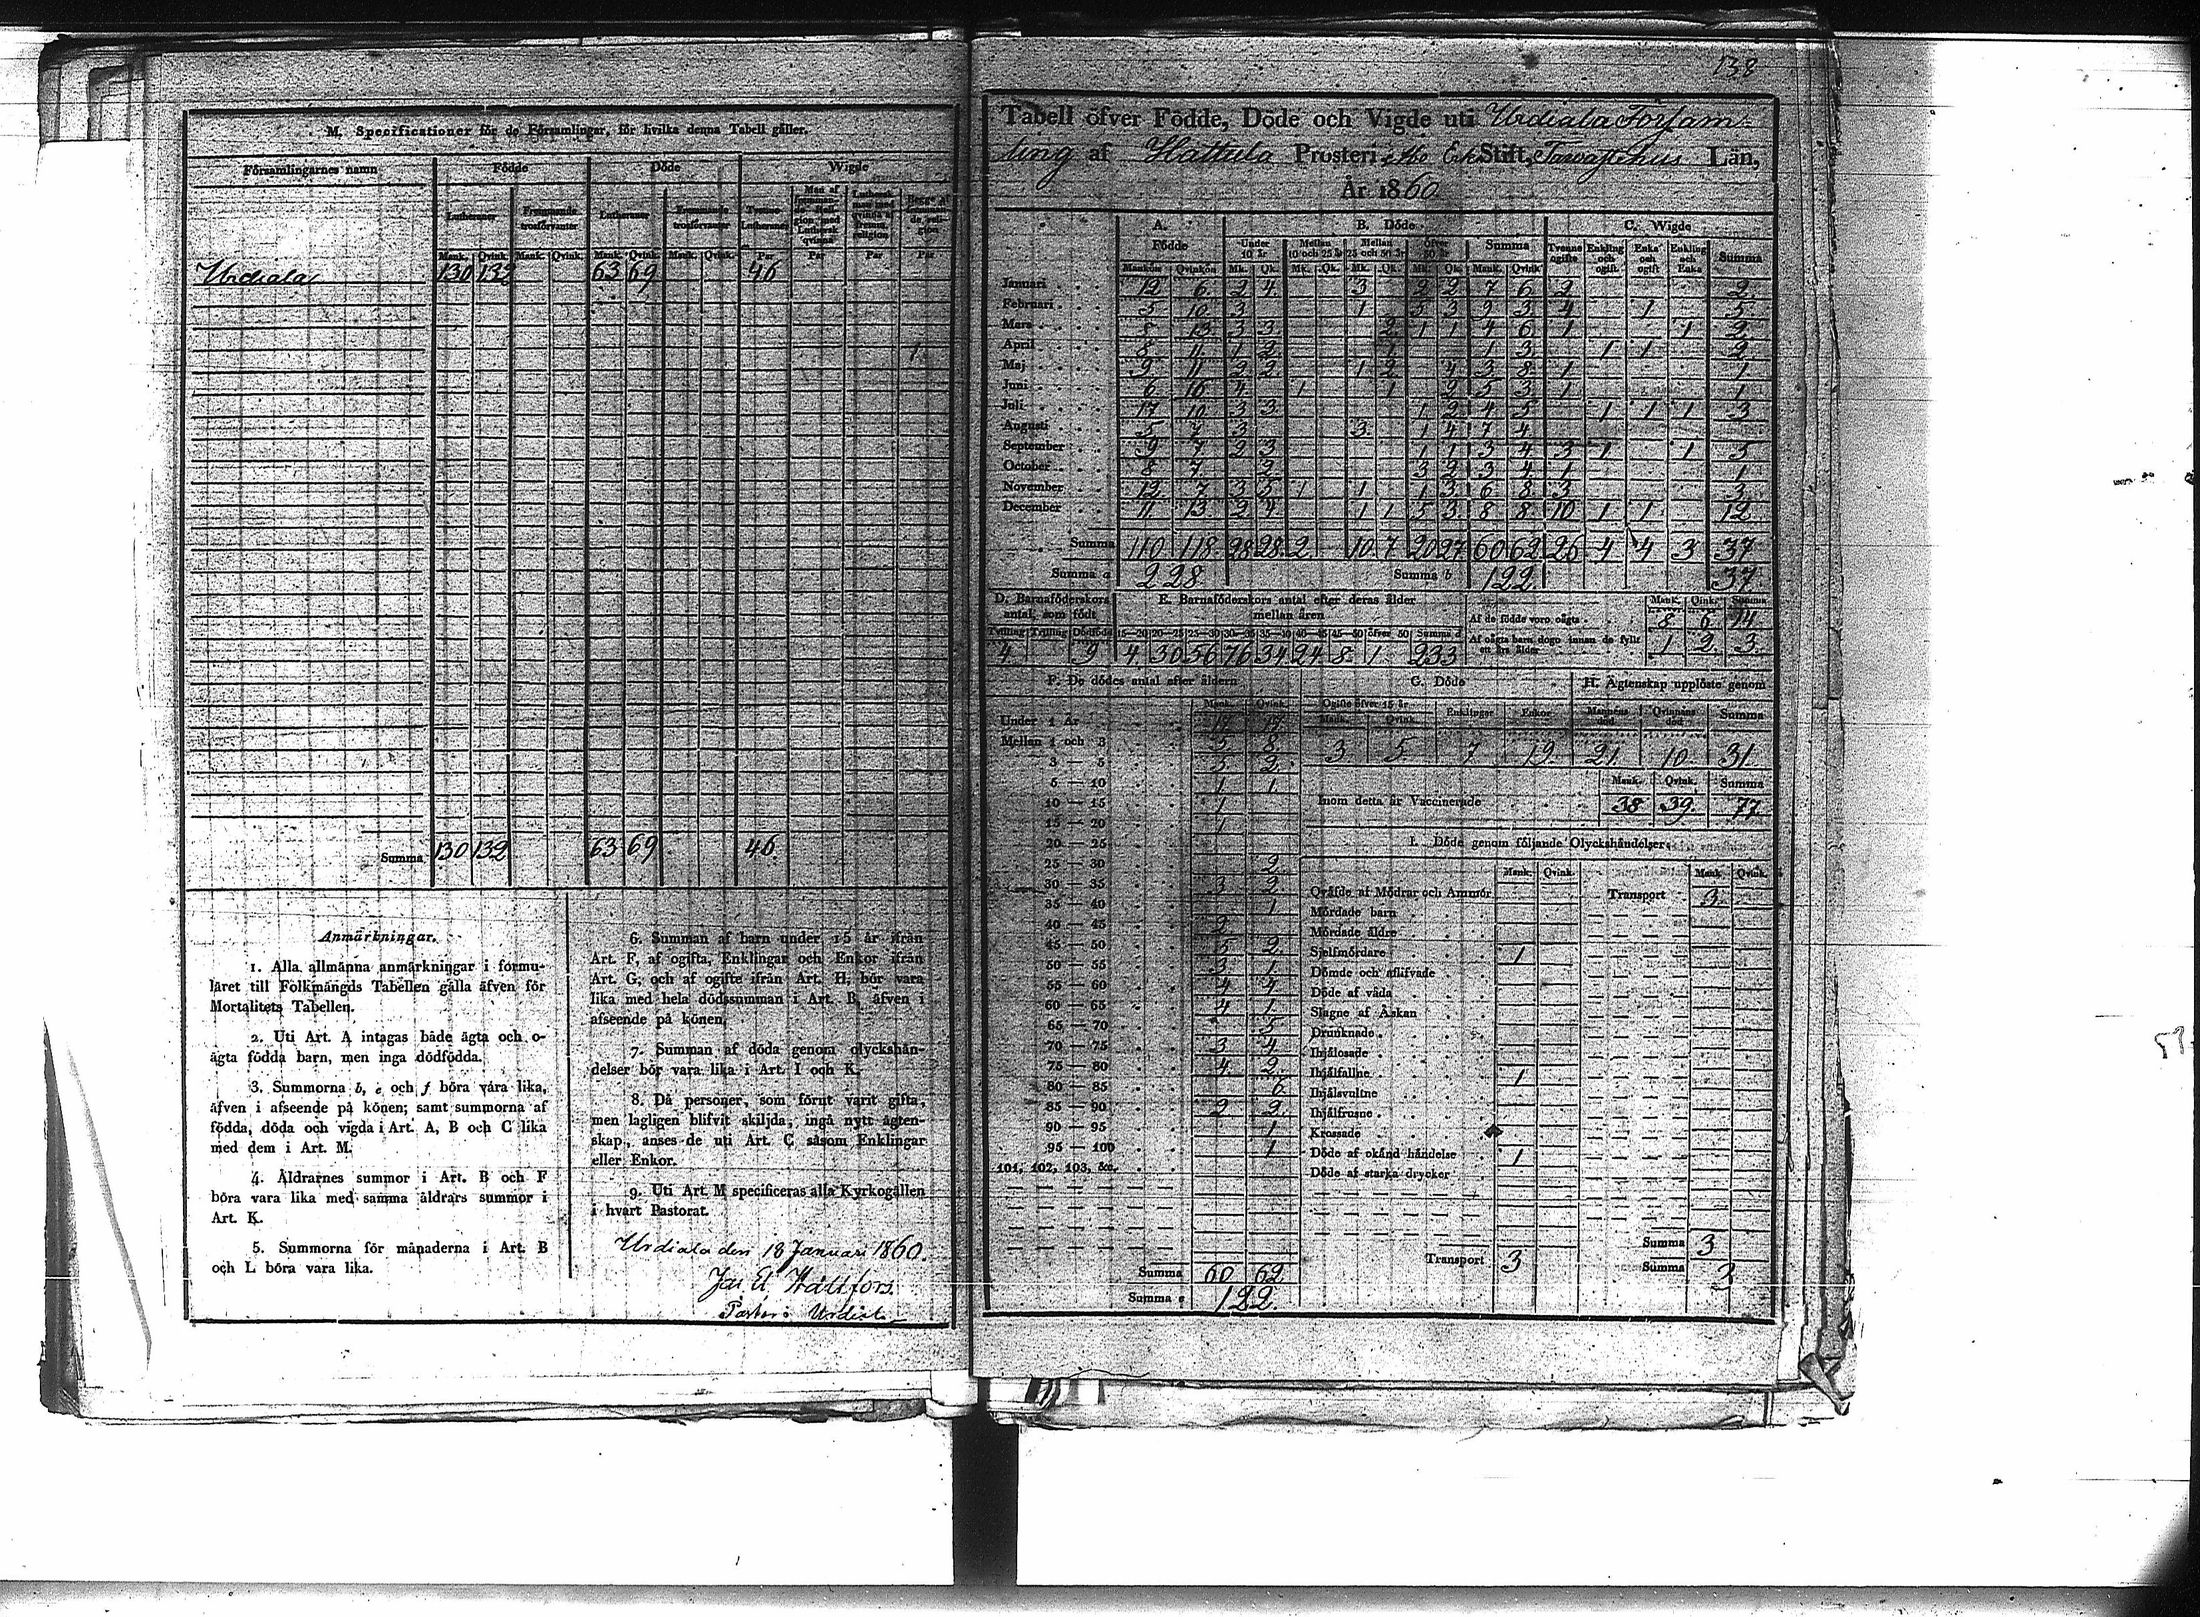 M. Specificationer för de Församlingar, för hvilka denna Tabell gäller.
Församlingarnes namn Födde Döde Wigde
Lutheraner Fremmande trosförvanter Lutheraner Fremmande trosförvanter Tvenne Lutheraner
Mank. Qvink. Mank. Qvink. Mank. Qvink. Mank. Qvink. Par Par Par Par
Urdiala 130 132 63 69 46
1
Summa 130 132 63 69 46
Anmärkningar.
1. Alla allmänna anmärkningar i formu-
läret till Folkmängds Tabellen gälla äfven för
Mortalitets Tabellen.
2. Uti Art. A intagas både ägta och o-
ägta födda barn, men inga dödfödda.
3. Summorna b, e och f böra vara lika,
äfven i afseende på könen; samt summorna af
födda, döda och vigda i Art. A, B och C lika
med dem i Art. M.
4. Åldrarnes summor i Art. B och F
böra vara lika med samma åldrars summor i
Art. K.
5. Summorna för månaderna i Art. B
och L böra vara lika.
6. Summan af barn under 15 år ifrån
Art. F, af ogifta, Enklingar och Enkor ifrån
Art. G, och af ogifte ifrån Art. H, bör vara
lika med hela dödssumman i Art. B, äfven i
afseende på könen.
7. Summan af döda genom olyckshän-
delser bör vara lika i Art. I och K.
8. Då personer, som förut varit gifta,
men lagligen blifvit skiljda, ingå nytt ägten-
skap, anses de uti Art. C såsom Enklingar
eller Enkor.
9. Uti Art. M specificeras alla Kyrkogällen
i hvart Pastorat.
Urdiala den 18 Januari 1860.
138
Tabell öfver Födde, Döde och Vigde uti Urdiala Församling
af Hattula Prosteri Åbo Erk Stift, Tawastehus Län,
År 1860
A. Födde B. Döde C. Wigde
Under 10 år Mellan 10 och 25 år Mellan 25 och 50 år Öfver 50 år Summa Tvenne ogifte Enkling och ogift Enka och ogift Enkling och Enka Summa
Mankön Qvinkön Mk. Qk. Mk. Qk. Mk. Qk. Mk. Qk. Mank. Qvink.
Januari 12 6 2 4 3 2 2 7 6 2 2
Februari 5 10 3 1 5 3 9 3 4 1 5
Mars 8 13 3 3 2 1 1 4 6 1 1 2
April 8 11 1 2 1 1 3 1 1 2
Maj 9 11 2 2 1 2 4 3 8 1 1
Juni 6 16 4 1 1 2 5 3 1 1
Juli 17 10 3 3 1 2 4 5 1 1 1 3
Augusti 5 7 3 3 1 4 7 4
September 9 7 2 3 1 1 3 4 3 1 1 5
October 8 7 2 3 2 3 4 1 1
November 12 7 3 5 1 1 1 3 6 8 3 3
December 11 13 2 4 1 1 5 3 8 8 10 1 1 12
Summa 110 118 28 28 2 10 7 20 27 60 62 26 4 4 3 37
Summa a 228 Summa b 122 37
D. Barnaföderskors antal, som födt
Tvilling Trilling Dödfödde
4 9
E. Barnaföderskors antal efter deras ålder mellan åren
15—20 20—25 25—30 30—35 35—40 40—45 45—50 öfver 50 Summa d
4 30 56 76 34 24 8 1 233
Mank. Qink. Summa
Af de födde voro oägta 8 6 14
Af oägta barn dogo innan de fyllt ett års ålder 1 2 3
F. De dödes antal efter åldern
Mank. Qvink.
Under 1 År 17 17
Mellan 1 och 3 5 8
3 — 5 5 2
5 — 10 1 1
10 — 15 1
15 — 20 1
20 — 25
25 — 30 2
30 — 35 3 2
35 — 40 1
40 — 45 2
45 — 50 5 2
50 — 55 3 1
55 — 60 4 4
60 — 65 4 1
65 — 70 5
70 — 75 3 4
75 — 80 4 2
80 — 85 6
85 — 90 2 2
90 — 95 1
95 — 100 1
101, 102, 103, &c.
Summa 60 62
Summa e 122
G. Döde
Ogifte öfver 15 år Enklingar Enkor
Mank. Qvink.
3 5 7 19
H. Ägtenskap upplöste genom
Mannens död Qvinnans död Summa
21 10 31
Mank. Qvink. Summa
Inom detta år Vaccinerade 38 39 77
I. Döde genom följande Olyckshändelser
Mank. Qvink. Mank. Qvink.
Qväfde af Mödrar och Ammor Transport 3
Mördade barn
Mördade äldre
Sjelfmördare 1
Dömde och aflifvade
Döde af våda
Slagne af Åskan
Drunknade
Ihjälosade
Ihjälfallne 1
Ihjälsvultne
Ihjälfrusne
Krossade
Döde af okänd händelse 1
Döde af starka drycker
Summa 3
Transport 3 Summa 3